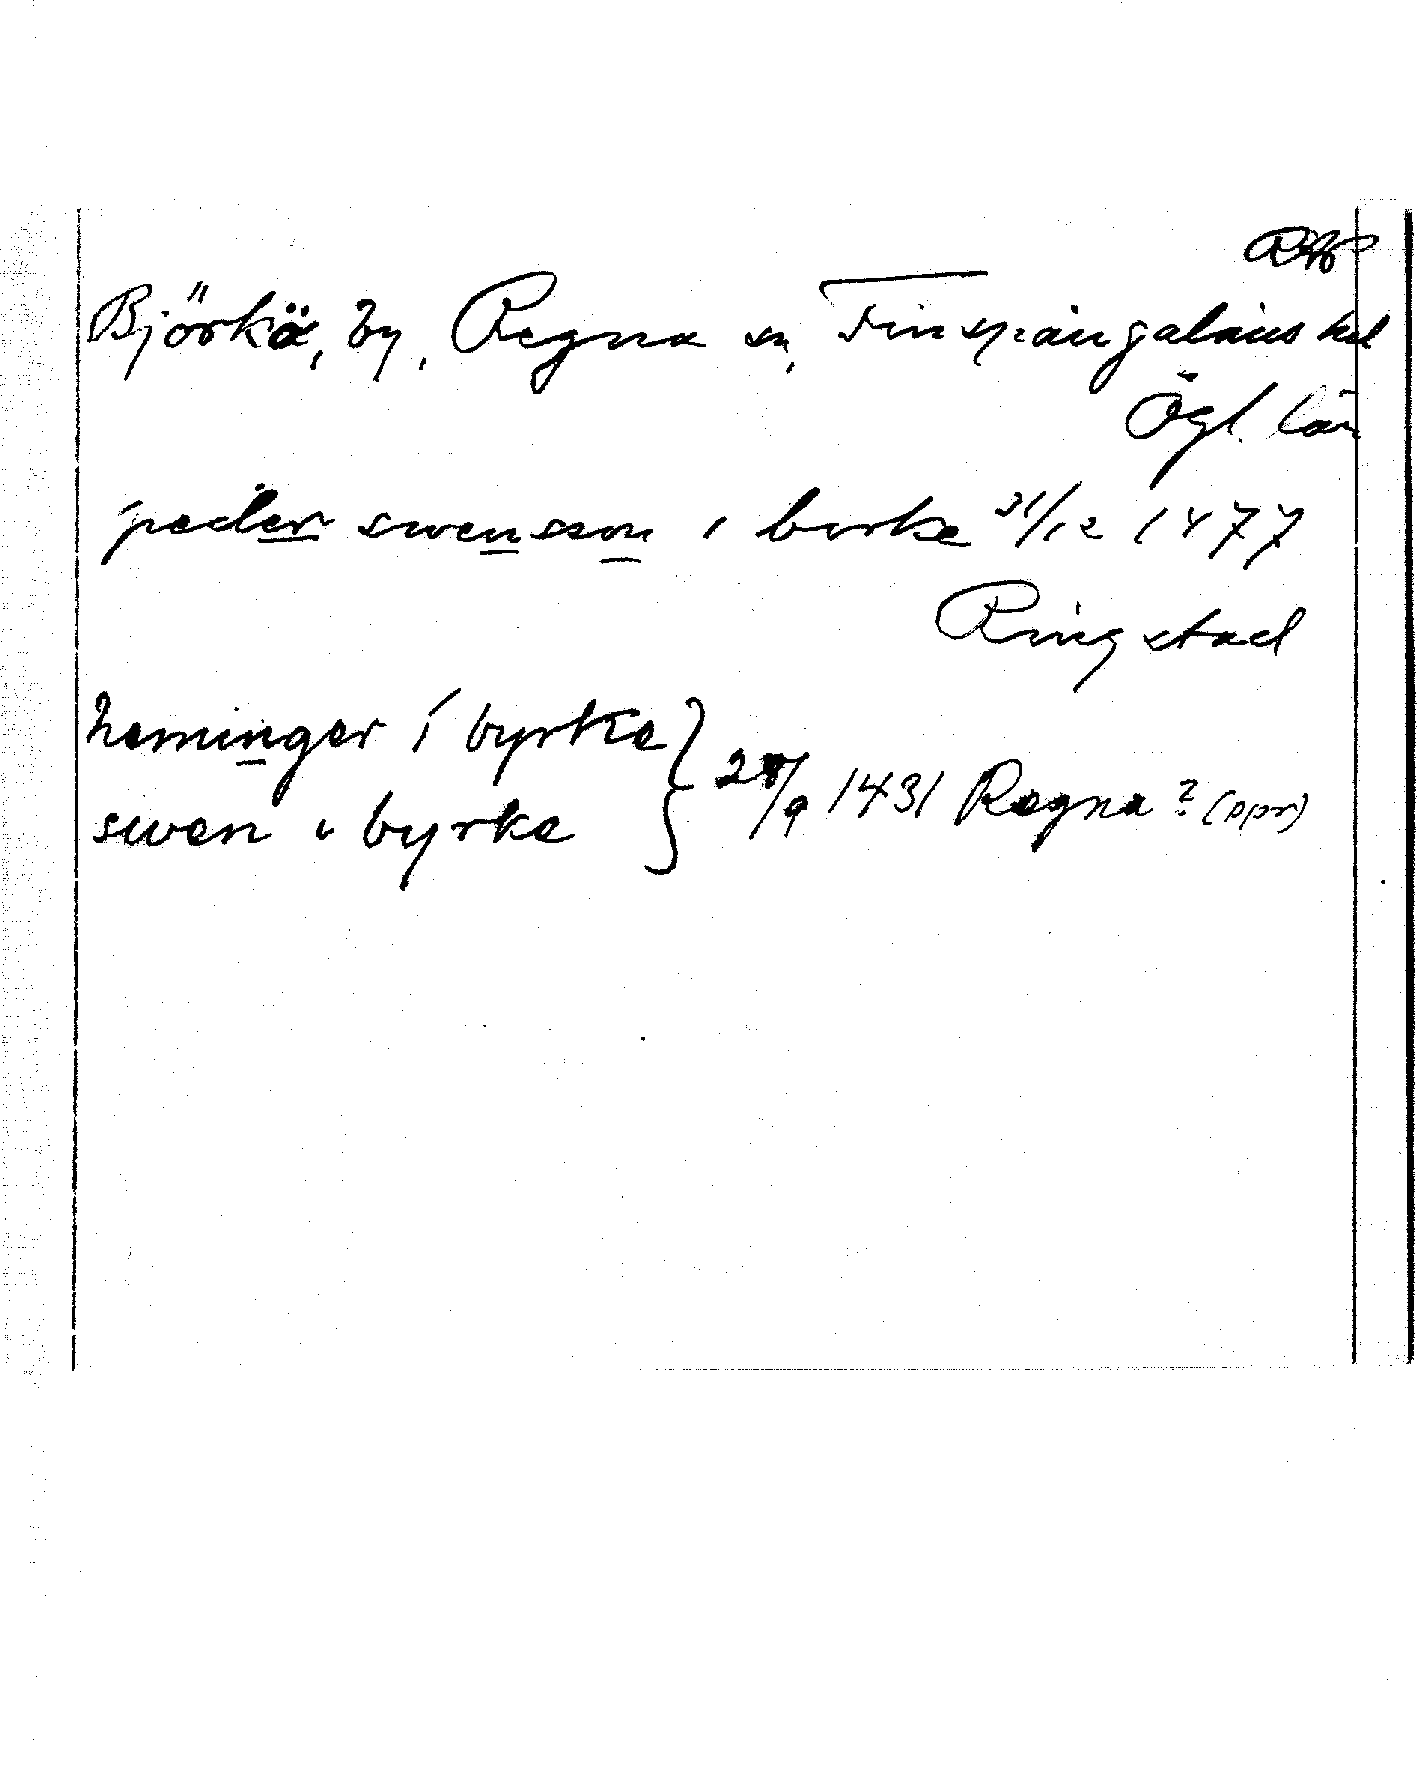 Björkö, by, Regna sn, Finspångaläns hd
Ögl. län
peder swensson i birke 31/12 1477
Ringstad
heminger i byrke
swen i byrke } 28/9 1431 Regna? (ppr)